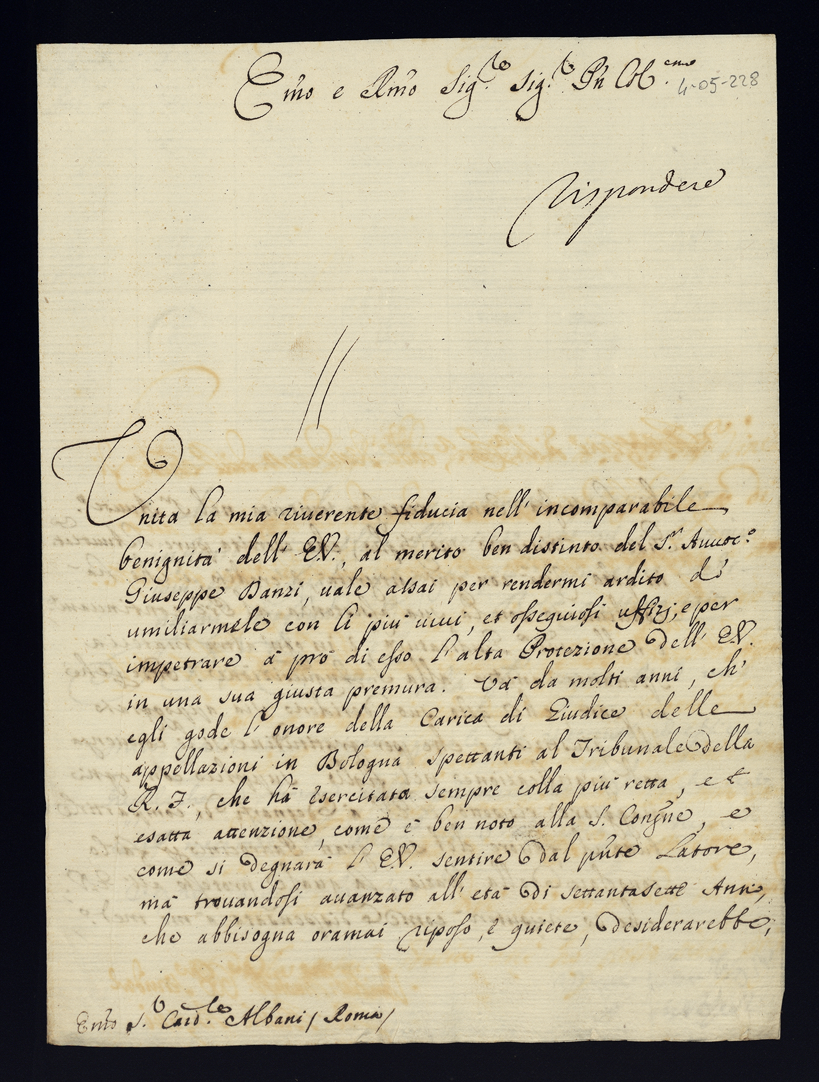 Emo e Rmo Sig.re Sig.re Pn Col.emo
4-05-228
Rispondere
Unita la mia riuerente fiducia nell' incomparabile
benignità dell' E.V., al merito ben distinto del S.r Auuoc.o
Giuseppe Danzi, uale assai per rendermi ardito di
umiliarmele con li più uiui, et ossequiosi uffizj, e per
impetrare à prò di esso l'alta Protezione dell' E.V.
in una sua giusta premura. Và da molti anni, ch'
egli gode l'onore della Carica di Giudice delle
appellazioni in Bologna spettanti al Tribunale della
R. F., che hà esercitata sempre colla più retta, et
esatta attenzione, come è ben noto alla S. Congne, e
come si degnarà l' E.V. sentire dal pnte Latore,
mà trouandosi auanzato all' età di settantasette Anni,
che abbisogna oramai riposo, e quiete, desiderarebbe,
Emo S.r Card.le Albani / Roma /